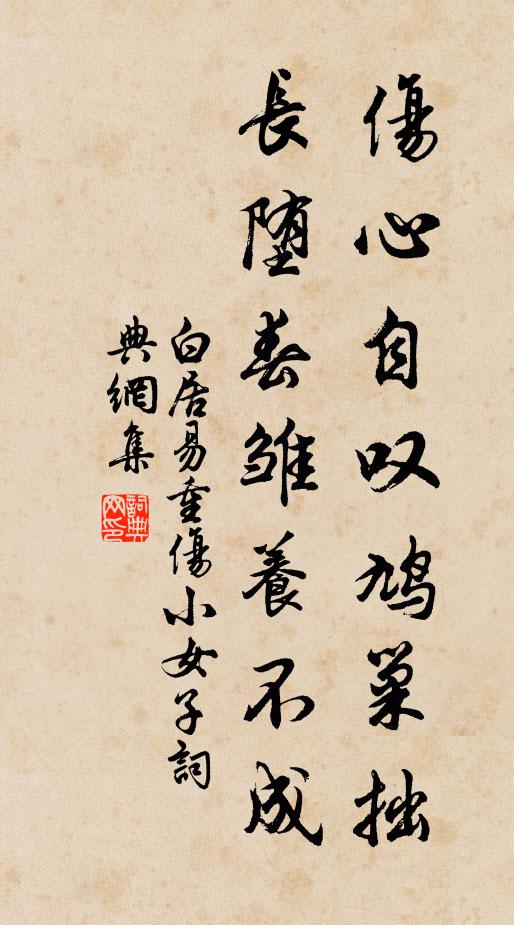 傷心自叹鳩巢拙
長堕春雏養不成
白居易重傷小女子詞
典網集
詞典網印